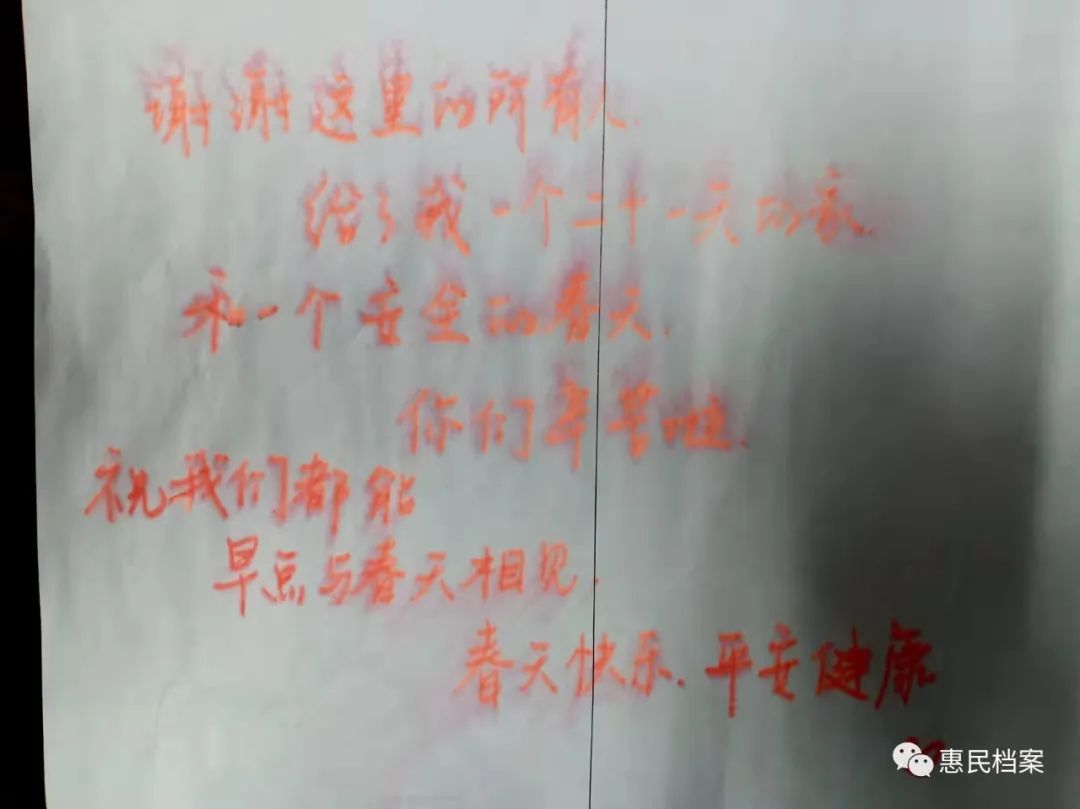 谢谢这里的所有人.
给了我一个二十一天的家.
和一个安全的春天.
你们辛苦啦.
祝我们都能
早点与春天相见.
春天快乐.平安健康
惠民档案